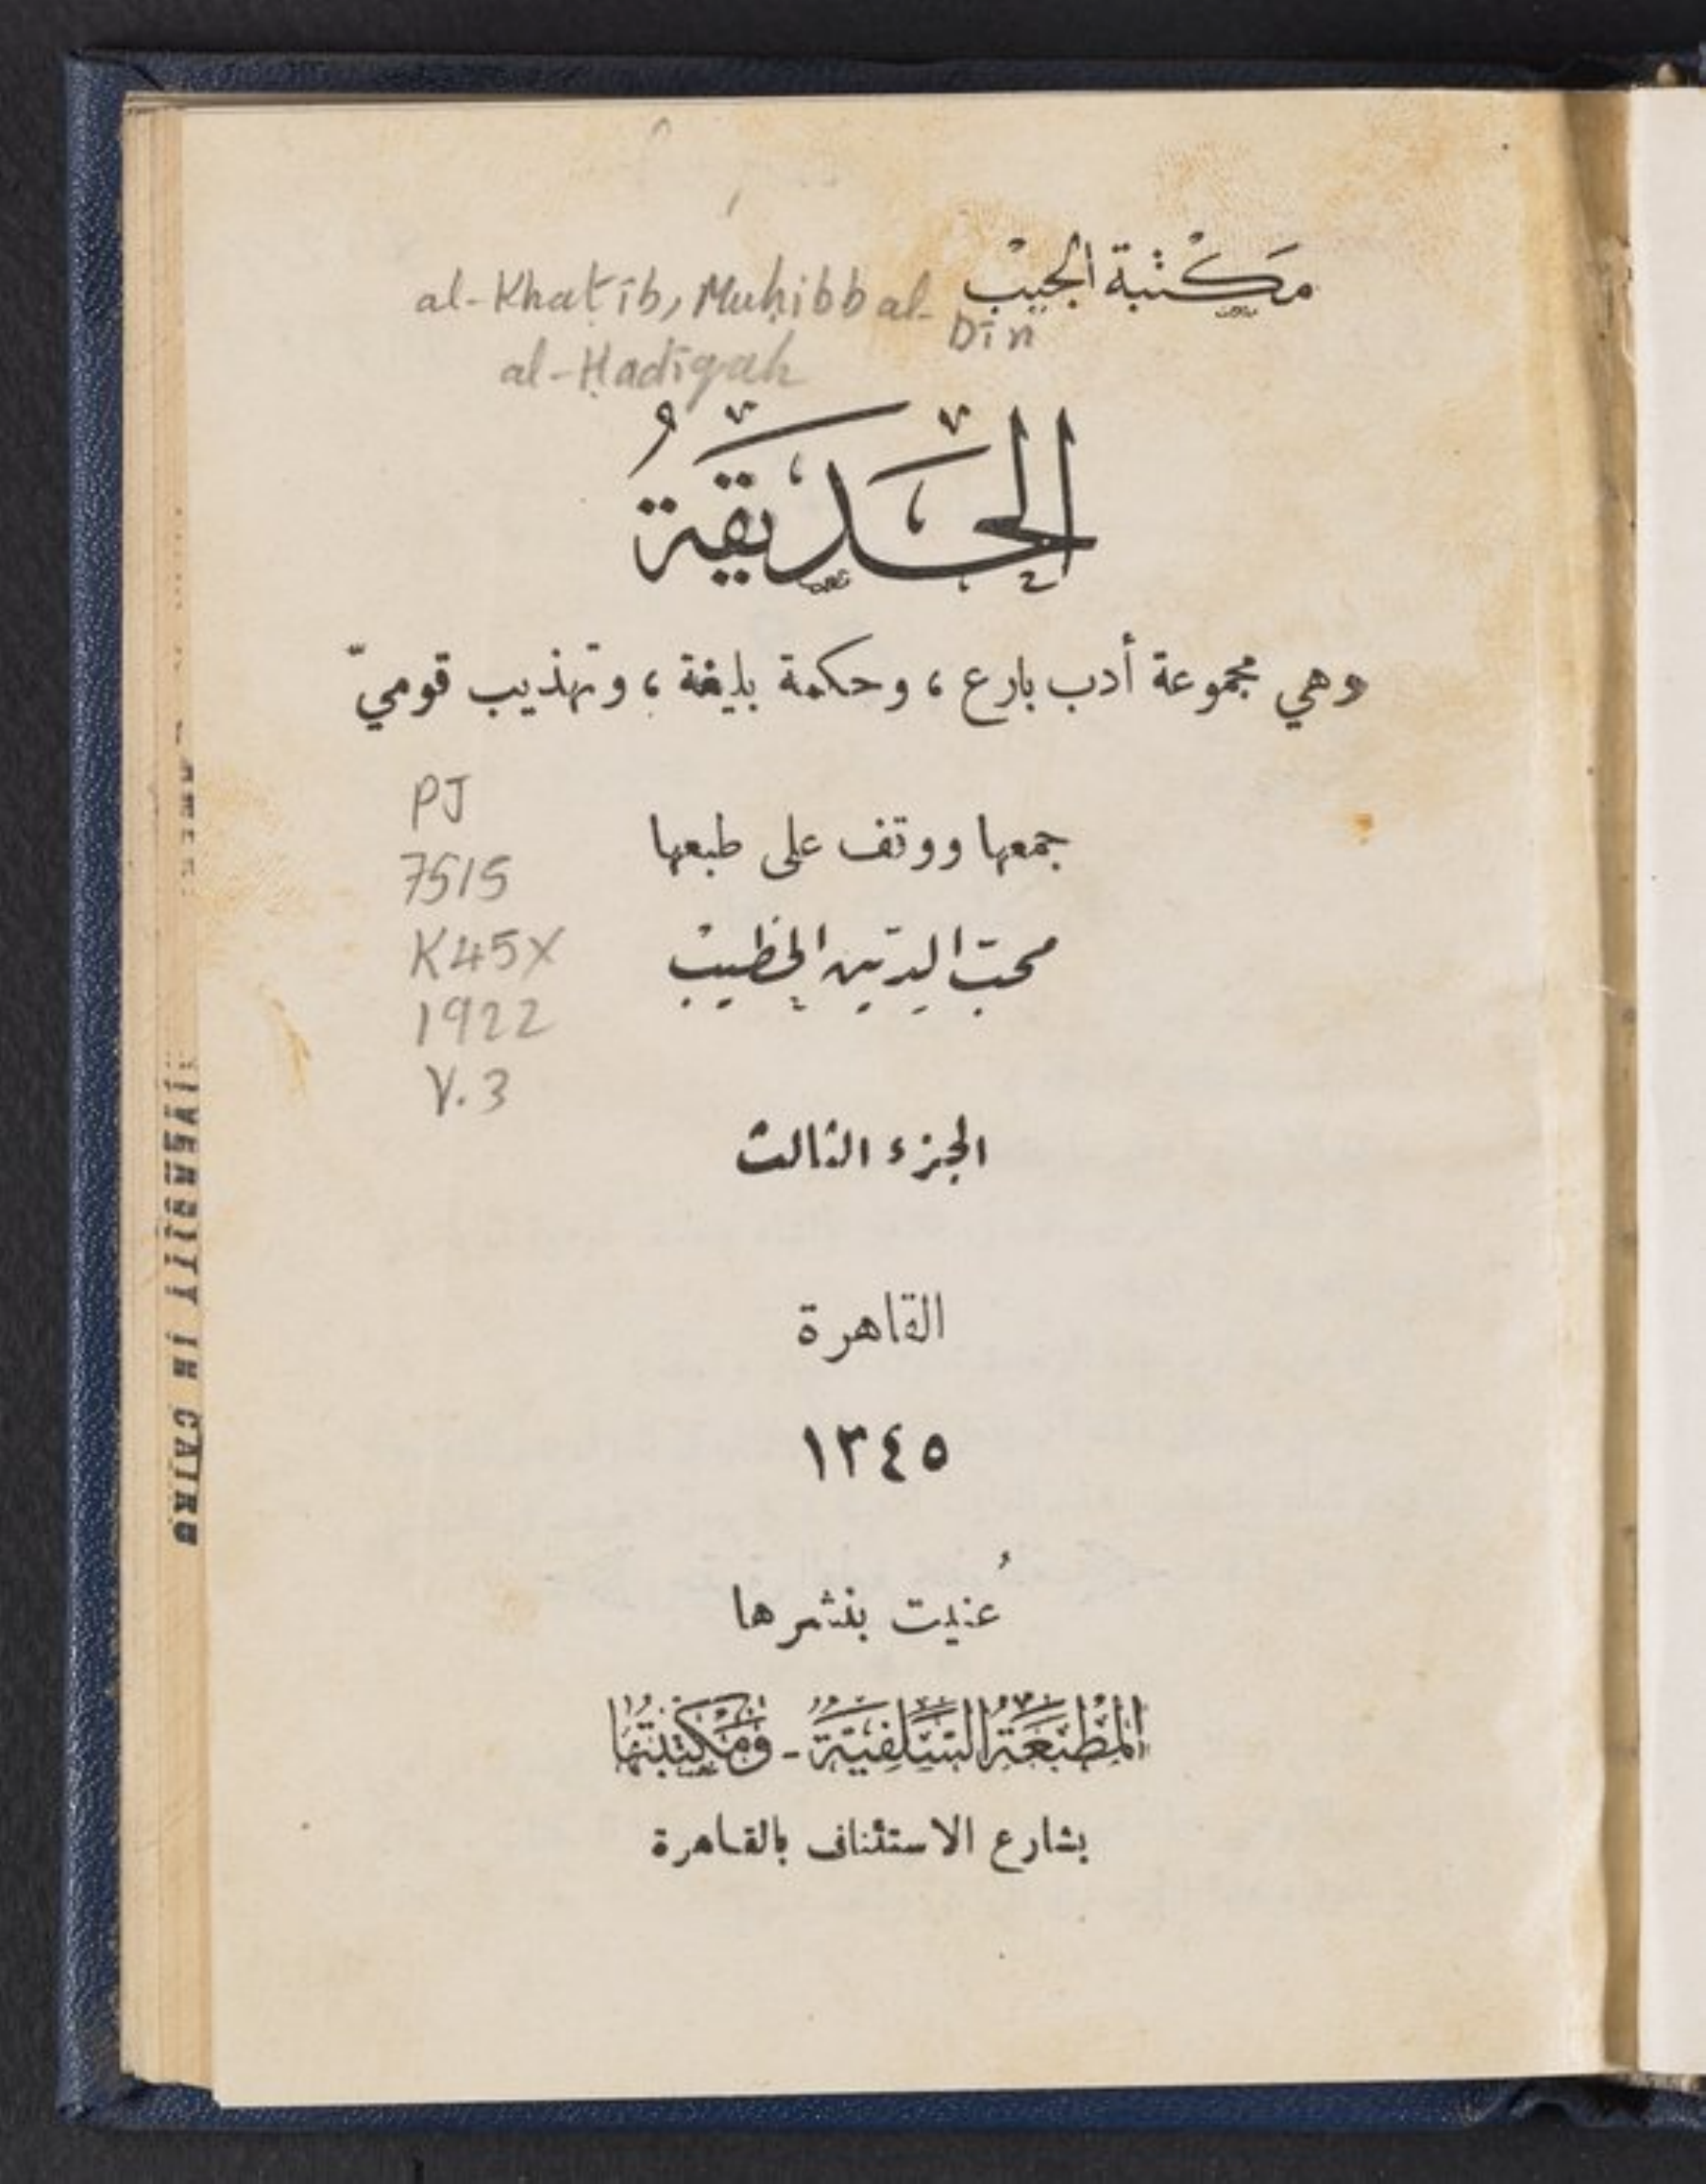 مكتبة الجيب
al-Khaṭīb, Muḥibb al-Dīn
al-Ḥadīqah
الحَديقَةُ
وهي مجموعة أدب بارع ، وحكمة بليغة ، وتهذيب قوميّ
جمعها ووقف على طبعها
محبّ الدّين الخطيب
PJ
7515
K45X
1922
V.3
الجزء الثالث
القاهرة
١٣٤٥
عُنيت بنشرها
المَطْبَعَةُ السَّلَفِيَّةُ - وَمَكْتَبَتُهَا
بشارع الاستئناف بالقاهرة
IVERSITY IN CAIRO